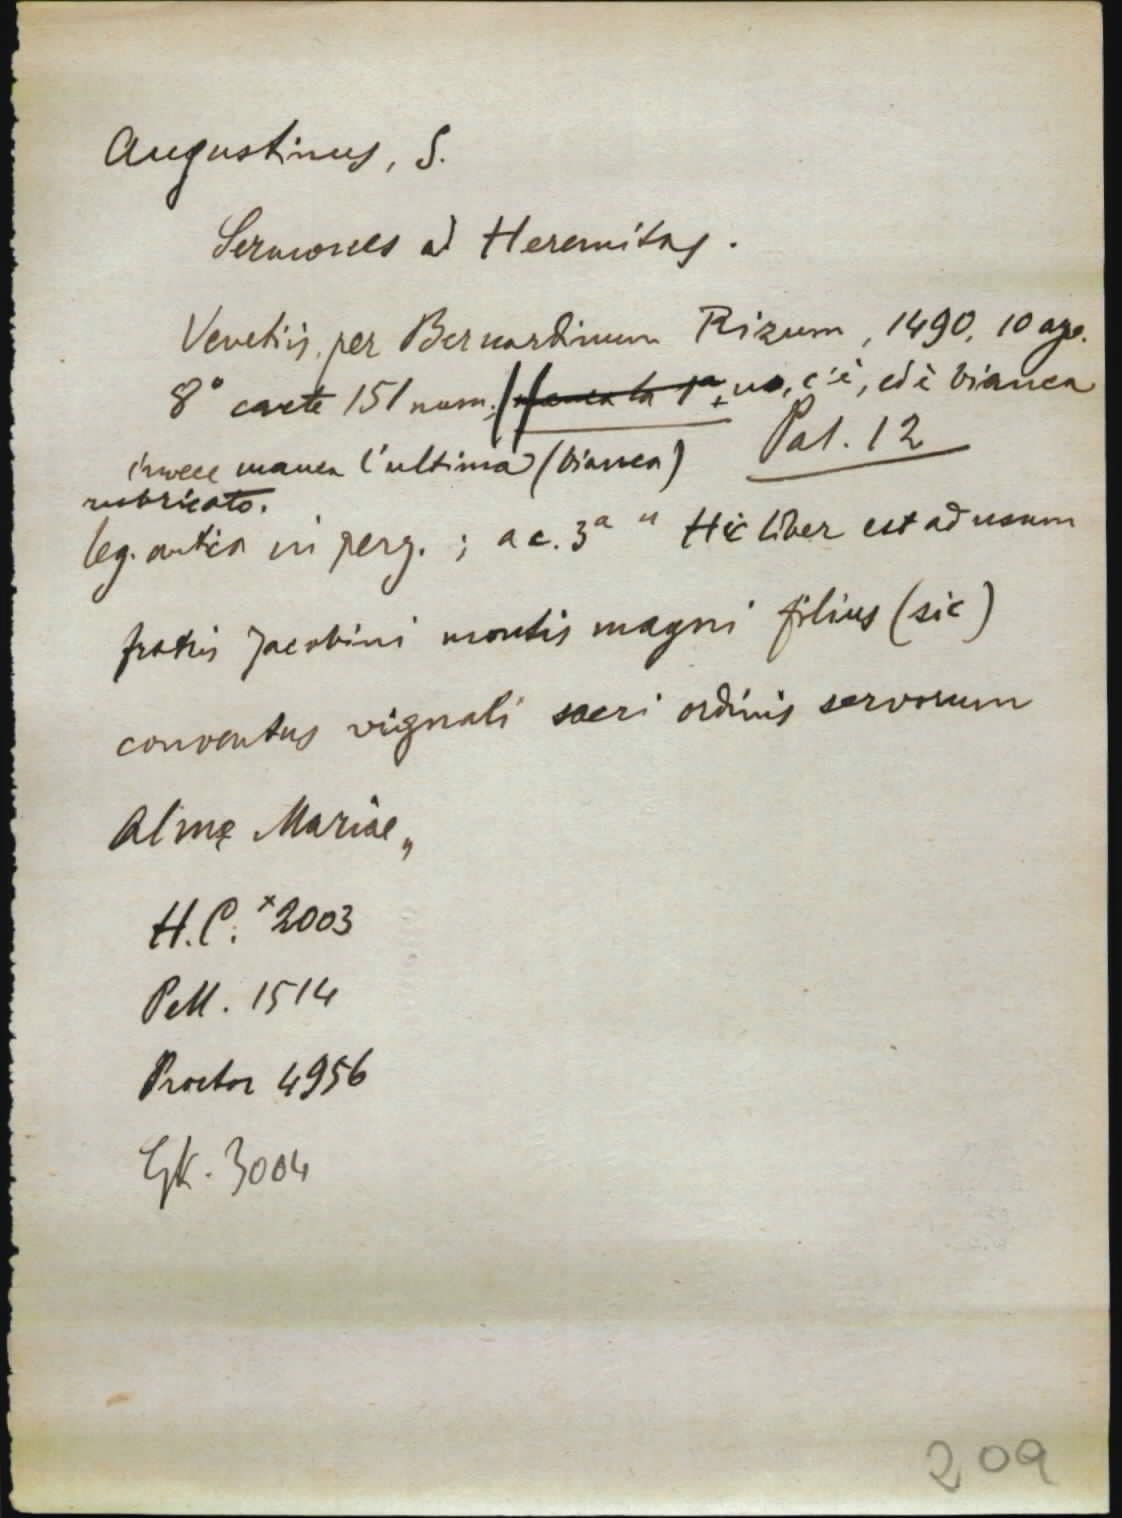 Augustinus, S.
Sermones ad Heremitas.
Venetiis, per Bernardinum Rizum, 1490, 10 ago.
8° carte 151 num. manca la 1ª, no, c'è, ed è bianca
invece manca l'ultima (bianca) Pal. 12
rubricato.
leg. antica in perg. ; a c. 3ª " Hic liber est ad usum
fratris Jacobini montis magni filius (sic)
conventus vignali sacri ordinis servorum
Almę Mariae„
H.C. *2003
Pell. 1514
Proctor 4956
GK. 3004
209